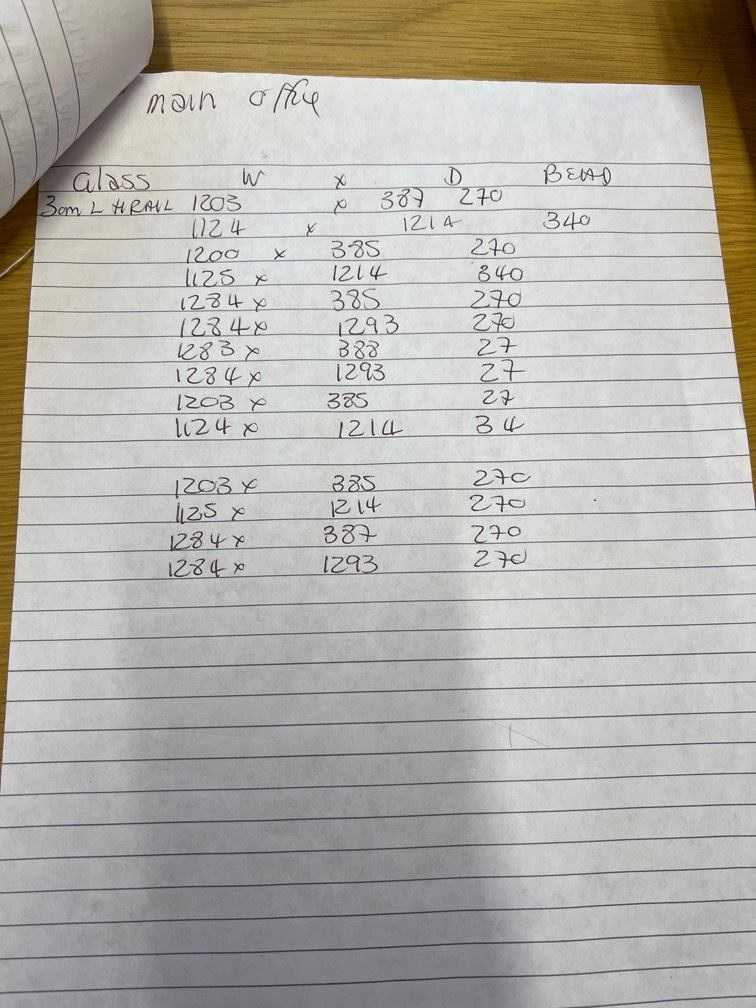 main office
Glass W x D BEAD
3om L HRAIL 1203 x 387 270
1124 x 1214 340
1200 x 385 270
1125 x 1214 340
1284 x 385 270
1284 x 1293 270
1283 x 388 27
1284 x 1293 27
1203 x 385 27
1124 x 1214 34
1203 x 385 270
1125 x 1214 270
1284 x 387 270
1284 x 1293 270